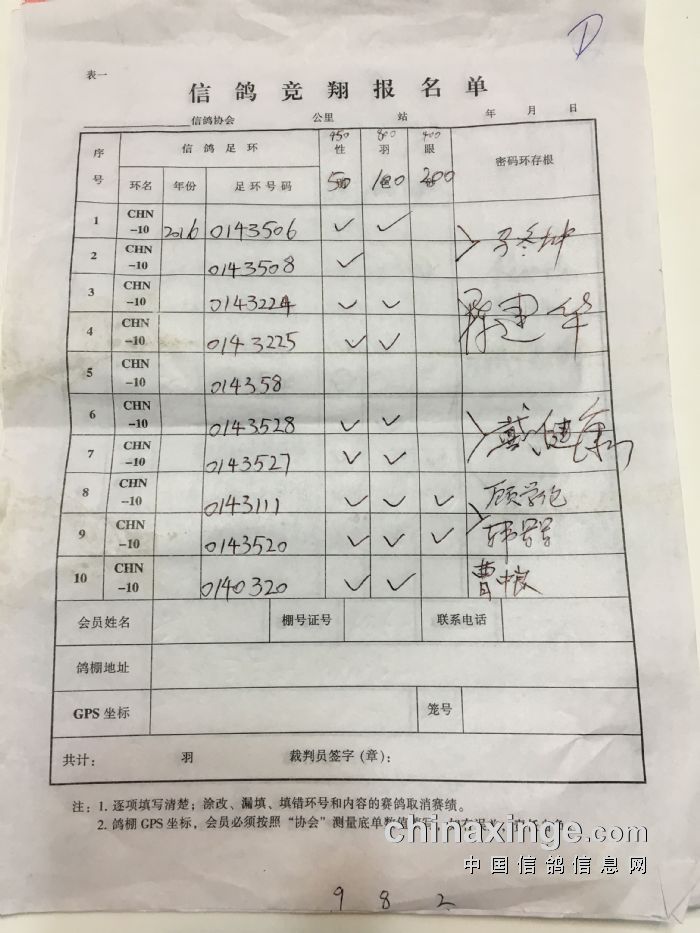 D
表一
信鸽竞翔报名单
信鸽协会 公里 站 年 月 日
序号 信鸽足环 950 性 800 羽 400 眼 密码环存根
环名 年份 足环号码 500 100 200
1 CHN-10 2016 0143506 ✓ ✓
2 CHN-10 0143508 ✓
3 CHN-10 0143224 ✓ ✓
4 CHN-10 0143225 ✓ ✓
5 CHN-10 014358
6 CHN-10 0143528 ✓ ✓ 戴健康
7 CHN-10 0143527 ✓ ✓
8 CHN-10 0143111 ✓ ✓ ✓ 顾学
9 CHN-10 0143520 ✓ ✓ ✓ 韩
10 CHN-10 0140320 ✓ ✓ 曹中良
会员姓名 棚号证号 联系电话
鸽棚地址
GPS 坐标 笼号
共计： 羽 裁判员签字（章）：
注：1. 逐项填写清楚；涂改、漏填、填错环号和内容的赛鸽取消赛绩。
2. 鸽棚 GPS 坐标，会员必须按照“协会”测量底单数值填写，如有误
chinaxinge.com
中国信鸽信息网
982